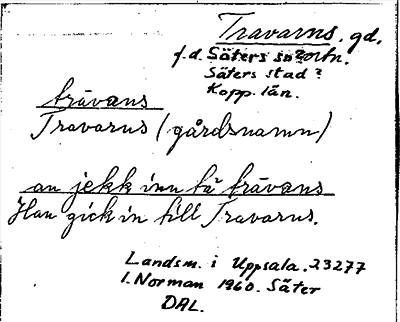 Travarns. gd.
f.d. Säters sn? ortn.
Säters stad?
Kopp. län.
trāvans
Travarns (gårdsnamn)
an jekk inn tä trāvans
Han gick in till Travarns.
Landsm. i Uppsala. 23277
I. Norman 1960. Säter
DAL.